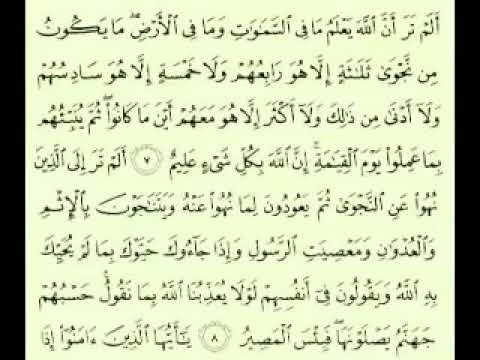 أَلَمْ تَرَ أَنَّ ٱللَّهَ يَعْلَمُ مَا فِى ٱلسَّمَٰوَٰتِ وَمَا فِى ٱلْأَرْضِ ۖ مَا يَكُونُ
مِن نَّجْوَىٰ ثَلَٰثَةٍ إِلَّا هُوَ رَابِعُهُمْ وَلَا خَمْسَةٍ إِلَّا هُوَ سَادِسُهُمْ
وَلَآ أَدْنَىٰ مِن ذَٰلِكَ وَلَآ أَكْثَرَ إِلَّا هُوَ مَعَهُمْ أَيْنَ مَا كَانُوا۟ ۖ ثُمَّ يُنَبِّئُهُم
بِمَا عَمِلُوا۟ يَوْمَ ٱلْقِيَٰمَةِ ۚ إِنَّ ٱللَّهَ بِكُلِّ شَىْءٍ عَلِيمٌ ٧ أَلَمْ تَرَ إِلَى ٱلَّذِينَ
نُهُوا۟ عَنِ ٱلنَّجْوَىٰ ثُمَّ يَعُودُونَ لِمَا نُهُوا۟ عَنْهُ وَيَتَنَٰجَوْنَ بِٱلْإِثْمِ
وَٱلْعُدْوَٰنِ وَمَعْصِيَتِ ٱلرَّسُولِ وَإِذَا جَآءُوكَ حَيَّوْكَ بِمَا لَمْ يُحَيِّكَ
بِهِ ٱللَّهُ وَيَقُولُونَ فِىٓ أَنفُسِهِمْ لَوْلَا يُعَذِّبُنَا ٱللَّهُ بِمَا نَقُولُ ۚ حَسْبُهُمْ
جَهَنَّمُ يَصْلَوْنَهَا ۖ فَبِئْسَ ٱلْمَصِيرُ ٨ يَٰٓأَيُّهَا ٱلَّذِينَ ءَامَنُوٓا۟ إِذَا